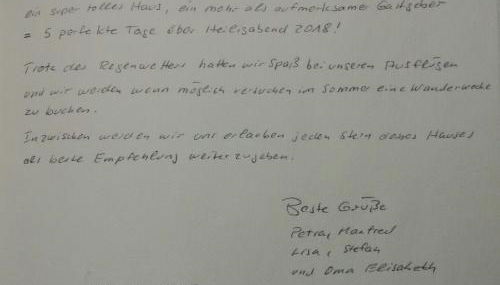 ein super tolles Haus, ein mehr als aufmerksamer Gastgeber
= 5 perfekte Tage über Heiligabend 2018!
Trotz des Regenwetters hatten wir Spaß bei unseren Ausflügen
und wir werden wenn möglich versuchen im Sommer eine Wanderwoche
zu buchen.
Inzwischen werden wir uns erlauben jeden Stern dieses Hauses
als beste Empfehlung weiterzugeben.
Beste Grüße
Petra, Manfred
Lisa, Stefan
und Oma Elisabeth